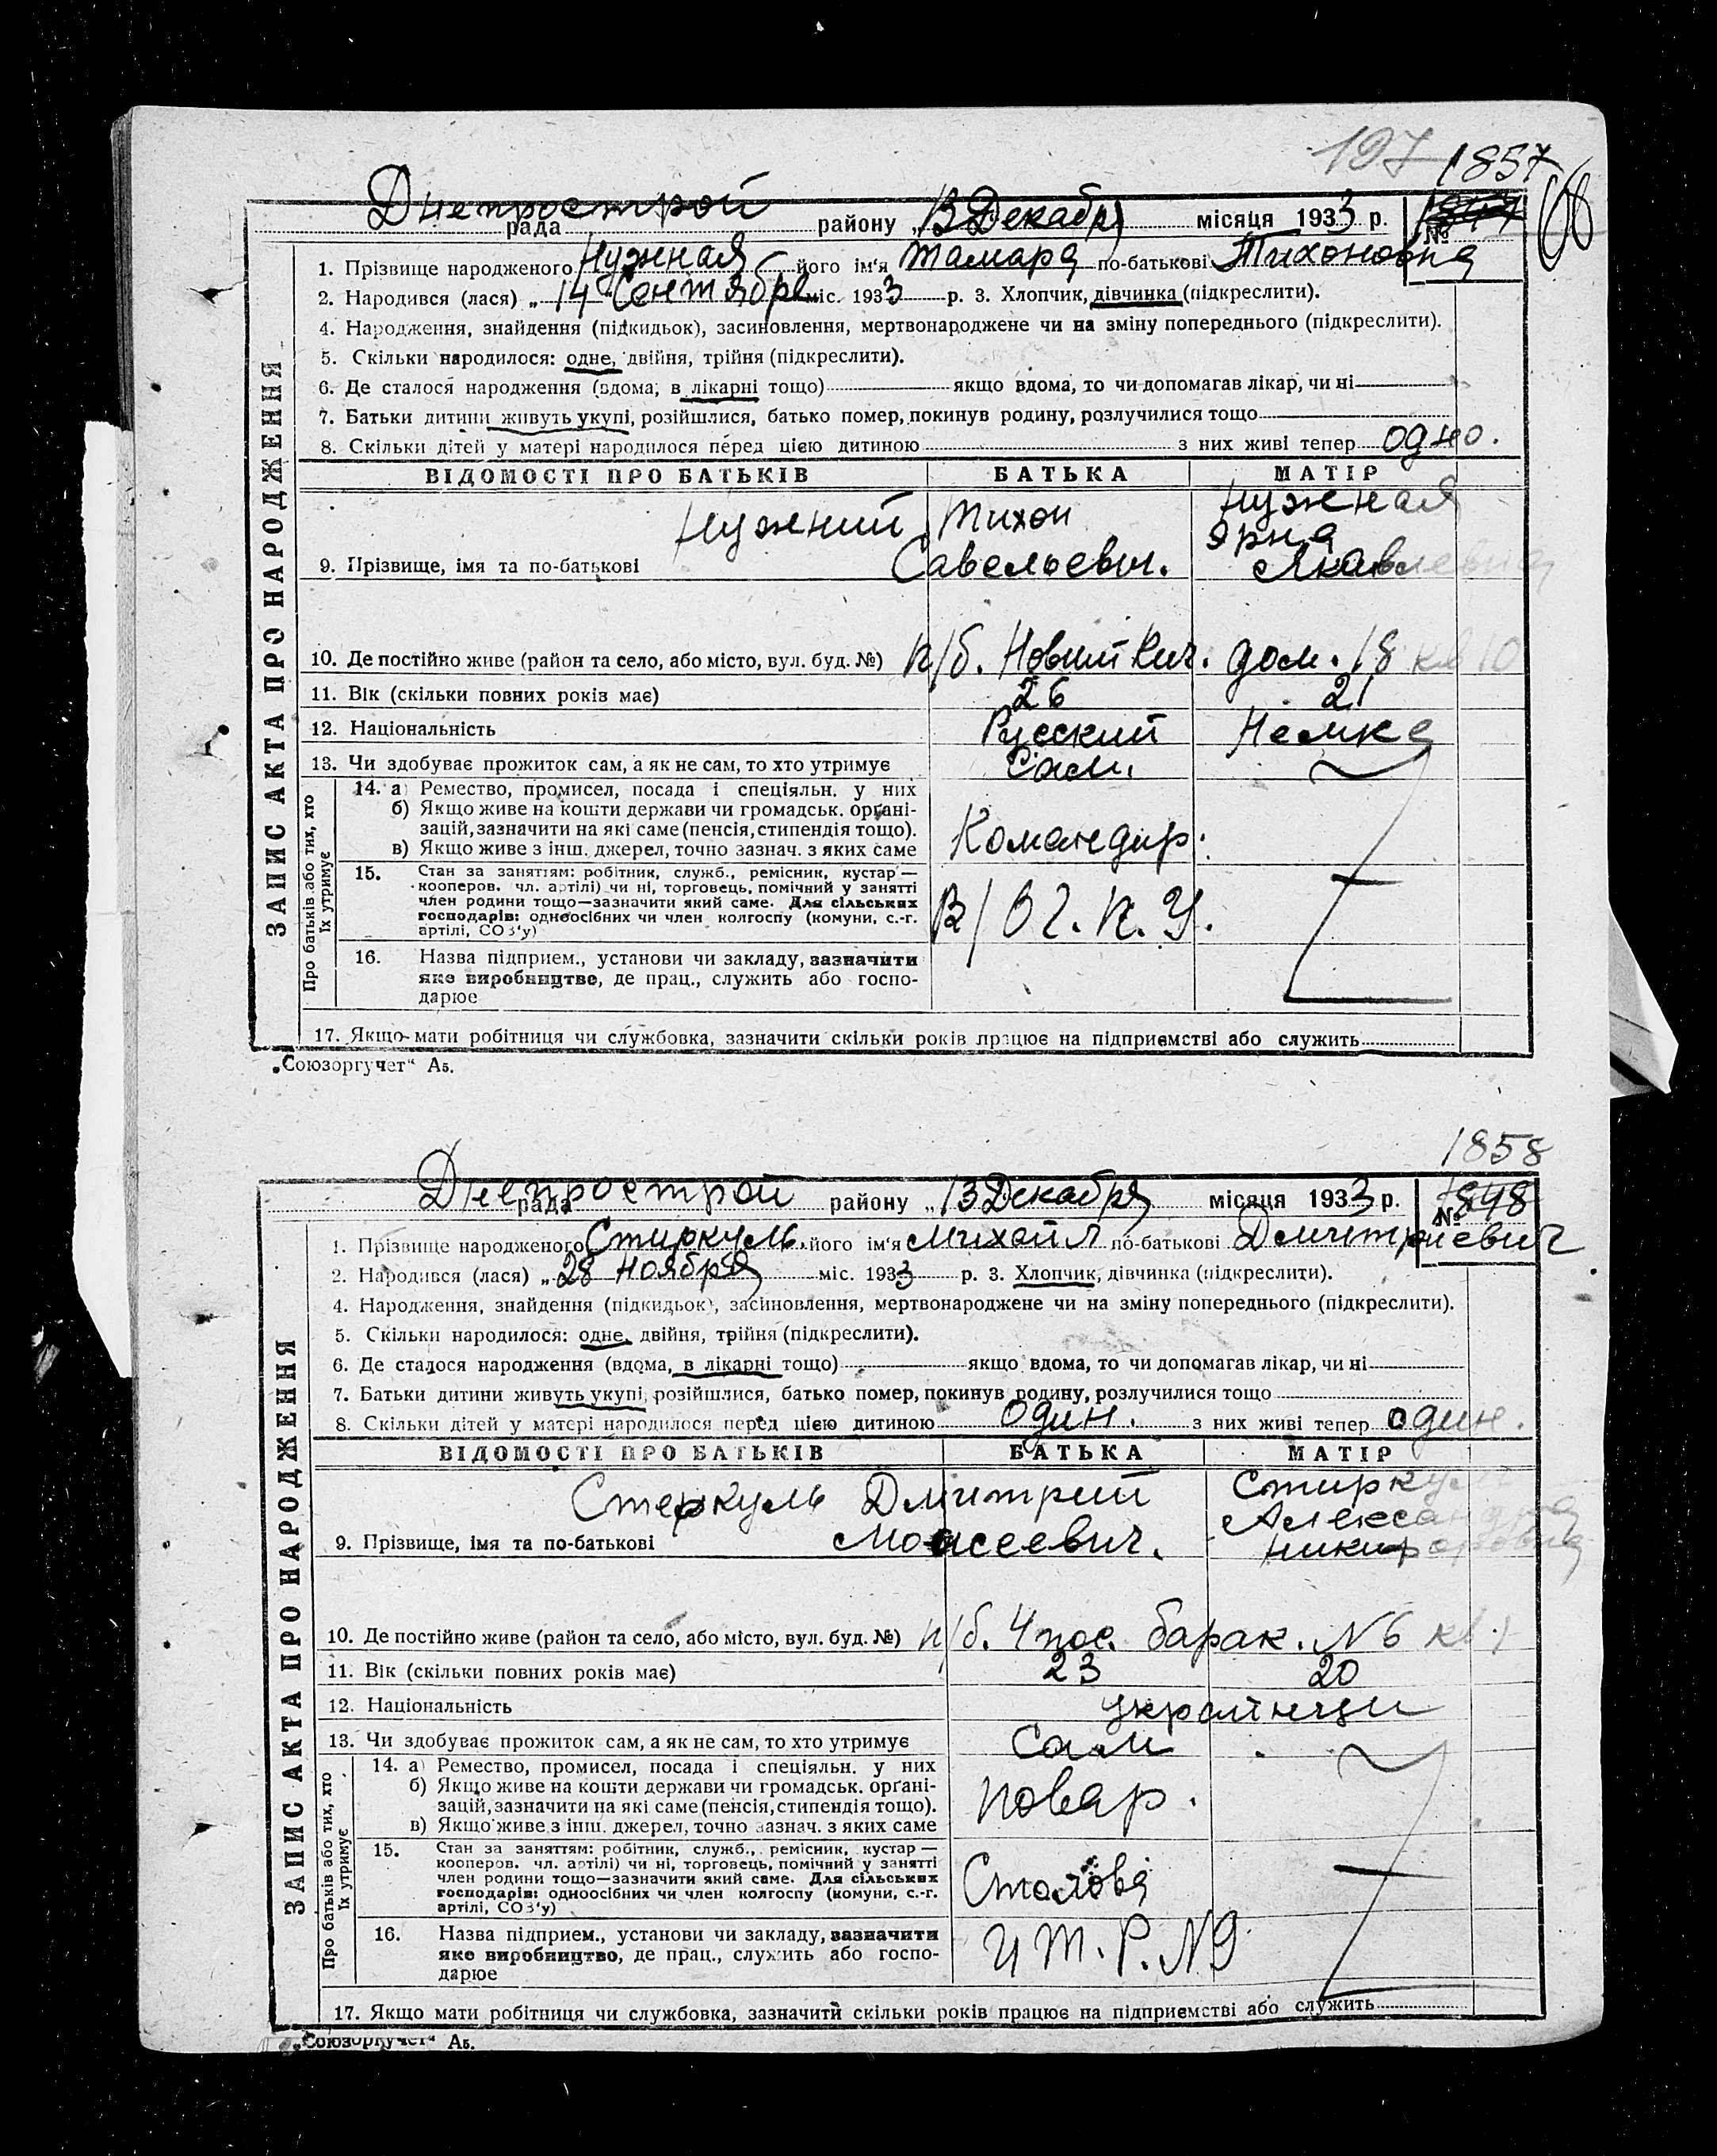 197
1857
Днепрострой
рада району „13 Декабря місяця 1933 р. №
68
1. Прізвище народженого Нужная його ім'я Тамара по-батькові Тихоновна
2. Народився (лася) „14 Сентября міс. 1933 р. 3. Хлопчик, дівчинка (підкреслити).
4. Народження, знайдення (підкидьок), засиновлення, мертвонароджене чи на зміну попереднього (підкреслити).
5. Скільки народилося: одне, двійня, трійня (підкреслити).
6. Де сталося народження (вдома, в лікарні тощо) якщо вдома, то чи допомагав лікар, чи ні
7. Батьки дитини живуть укупі, розійшлися, батько помер, покинув родину, розлучилися тощо
8. Скільки дітей у матері народилося перед цією дитиною з них живі тепер одно.
ВІДОМОСТІ ПРО БАТЬКІВ БАТЬКА МАТІР
Нужний Тихон Нужная
9. Прізвище, імя та по-батькові Савельевич. Яковлевна
10. Де постійно живе (район та село, або місто, вул. буд. №) п/б. Новий Кич. дом. 18 кв 10
11. Вік (скільки повних років має) 26 21
12. Національність Русский Немка
13. Чи здобуває прожиток сам, а як не сам, то хто утримує Сам.
14. а) Ремество, промисел, посада і спеціяльн. у них
б) Якщо живе на кошти держави чи громадськ. орґані-
зацій, зазначити на які саме (пенсія, стипендія тощо).
в) Якщо живе з інш. джерел, точно зазнач. з яких саме
Командир.
15. Стан за заняттям: робітник, служб., ремісник, кустар —
кооперов. чл. артілі) чи ні, торговець, помічний у занятті
член родини тощо—зазначити який саме. Для сільських
господарів: одноосібних чи член колгоспу (комуни, с.-г.
артілі, СОЗ'у)
В/О Г. П. У.
16. Назва підприєм., установи чи закладу, зазначити
яке виробництво, де прац., служить або госпо-
дарює
17. Якщо мати робітниця чи службовка, зазначити скільки років працює на підприємстві або служить
ЗАПИС АКТА ПРО НАРОДЖЕННЯ
Про батьків або тих, хто
їх утримує
„Союзоргучет“ А5.
1858
Днепрострой
рада району „13 Декабря місяця 1933 р. № 848
1. Прізвище народженого Стиркуль його ім'я Михаил по-батькові Дмитриевич
2. Народився (лася) „28 Ноября міс. 1933 р. 3. Хлопчик, дівчинка (підкреслити).
4. Народження, знайдення (підкидьок), засиновлення, мертвонароджене чи на зміну попереднього (підкреслити).
5. Скільки народилося: одне, двійня, трійня (підкреслити).
6. Де сталося народження (вдома, в лікарні тощо) якщо вдома, то чи допомагав лікар, чи ні
7. Батьки дитини живуть укупі, розійшлися, батько помер, покинув родину, розлучилися тощо
8. Скільки дітей у матері народилося перед цією дитиною один. з них живі тепер один.
ВІДОМОСТІ ПРО БАТЬКІВ БАТЬКА МАТІР
Стеркуль Дмитрий Стиркуль
Александра
9. Прізвище, імя та по-батькові Моисеевич.
10. Де постійно живе (район та село, або місто, вул. буд. №) п/б. 4 пос. барак. N 6 кв 1
11. Вік (скільки повних років має) 23 20
12. Національність украинци
13. Чи здобуває прожиток сам, а як не сам, то хто утримує Сам
14. а) Ремество, промисел, посада і спеціяльн. у них
б) Якщо живе на кошти держави чи громадськ. орґані-
зацій, зазначити на які саме (пенсія, стипендія тощо).
в) Якщо живе з інш. джерел, точно зазнач. з яких саме
повар.
15. Стан за заняттям: робітник, служб., ремісник, кустар —
кооперов. чл. артілі) чи ні, торговець, помічний у занятті
член родини тощо—зазначити який саме. Для сільських
господарів: одноосібних чи член колгоспу (комуни, с.-г.
артілі, СОЗ'у)
Столова
16. Назва підприєм., установи чи закладу, зазначити
яке виробництво, де прац., служить або госпо-
дарює
И Т. Р. N 9
17. Якщо мати робітниця чи службовка, зазначити скільки років працює на підприємстві або служить
ЗАПИС АКТА ПРО НАРОДЖЕННЯ
Про батьків або тих, хто
їх утримує
„Союзоргучет“ А5.